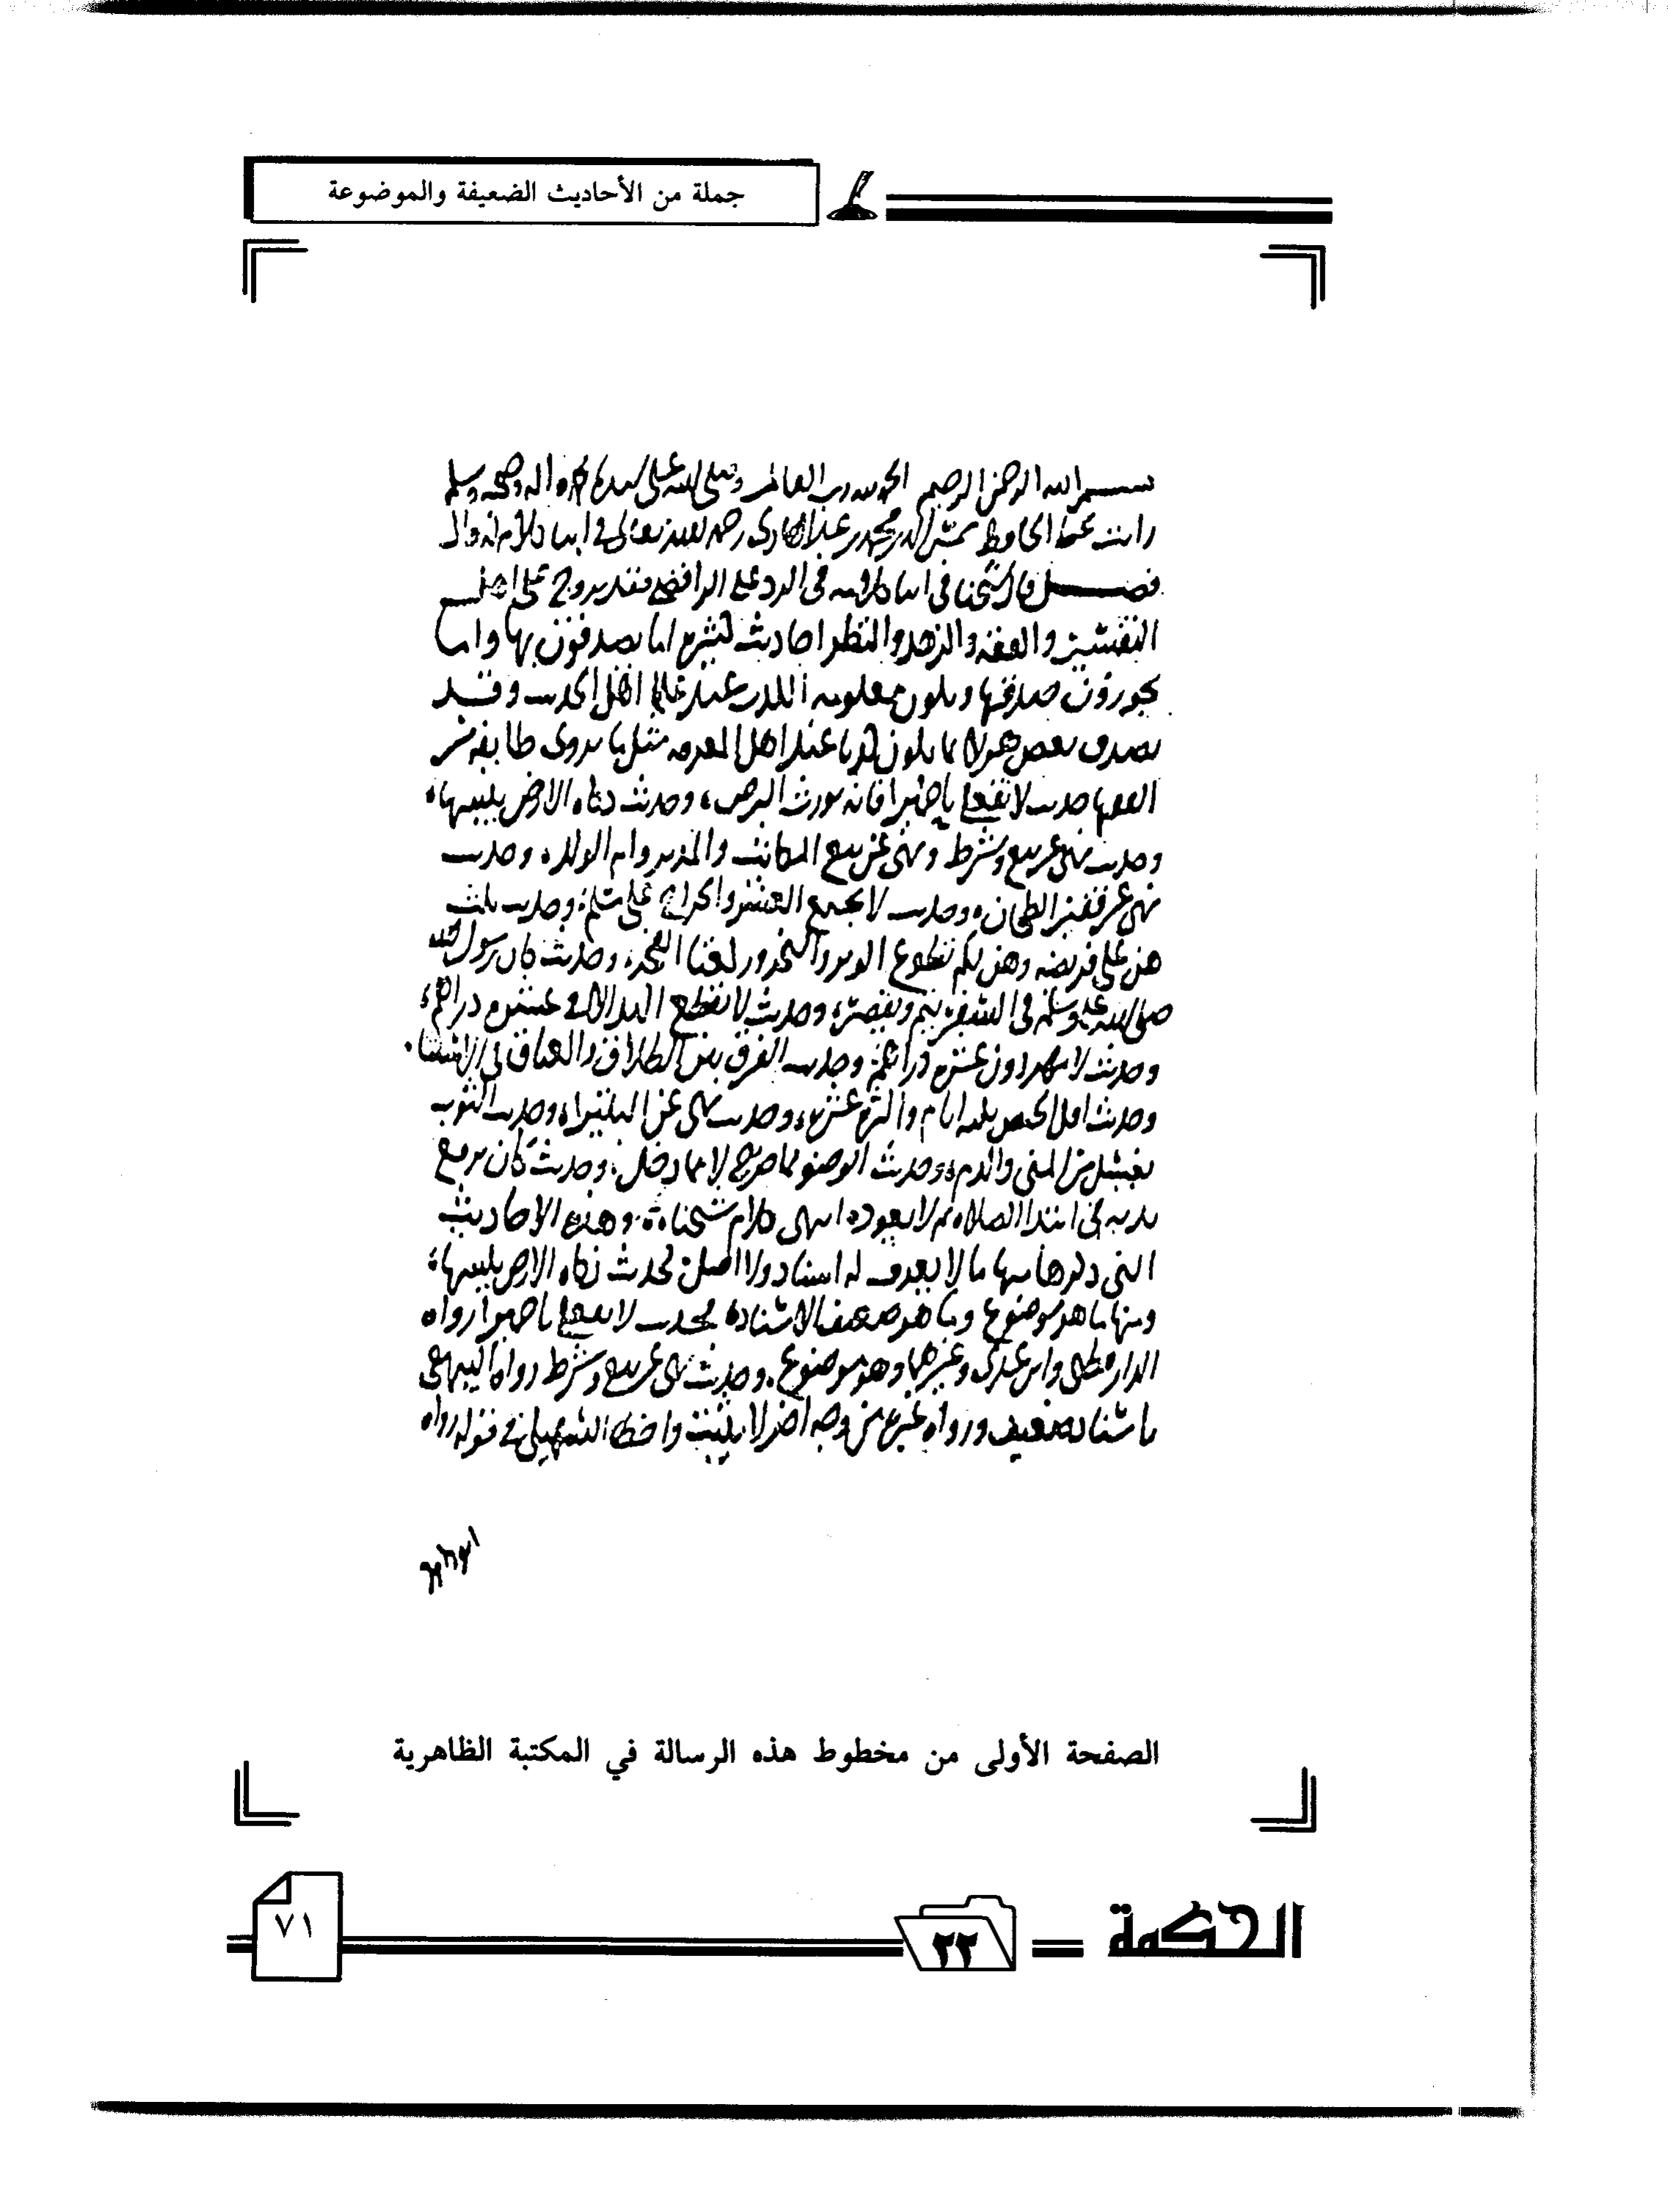 جملة من الأحاديث الضعيفة والموضوعة
بسم الله الرحمن الرحيم الحمد لله رب العالمين وصلى الله على سيدنا محمد واله وصحبه وسلم
رايت بخط الحافظ شمس الدين محمد بن عبد الهادي رحمه الله تعالى في اثناء كلام له قال
فصل قال شيخنا في اثناء كلامه في الرد على الرافضي فقد يروج على اهل
التفسير والفقه والزهد والنظر احاديث كثيرة اما يصدقون بها واما
يجوزون صدقها ويكون معلومه الكذب عند علما اهل الحديث وقد
يصدق بعض هولا بما يكون كذبا عند اهل المعرفه مثل ما يروى طايفه من
الفقها حديث لا تفعلي يا حميرا فانه يورث البرص، وحديث زكاه الارض يبسها،
وحديث نهى عن بيع وشرط ونهى عن بيع المكاتب والمدبر وام الولد، وحديث
نهى عن قفيز الطحان، وحديث لا يجتمع العشر والخراج على مسلم، وحديث ثلث
هن علي فريضه وهن لكم تطوع الوتر والنحر وركعتا الفجر، وحديث كان رسول الله
صلى الله عليه وسلم في السفر يتم ويقصر، وحديث لا تقطع اليد الا في عشره دراهم،
وحديث لا مهر دون عشره دراهم، وحديث الفرق بين الطلاق والعتاق في الاستثنا.
وحديث اقل الحيض ثلثه ايام واكثره عشره، وحديث نهى عن البتيرا، وحديث الثوب
يغسل من المني والدم، وحديث الوضو مما خرج لا مما دخل، وحديث كان يرفع
يديه في ابتدا الصلاه ثم لا يعود، انتهى كلام شيخنا، وهذه الاحاديث
التي ذكرها منها ما لا يعرف له اسناد ولا اصل كحديث زكاه الارض يبسها،
ومنها ما هو موضوع وما هو ضعيف الاسناد، فحديث لا تفعلي يا حميرا رواه
الدارقطني وابن عدي وغيرهما وهو موضوع. وحديث نهى عن بيع وشرط رواه البيهقي
باسناد ضعيف ورواه غيره من وجه اخر لا يثبت واخطا السهيلي في قوله رواه
الصفحة الأولى من مخطوط هذه الرسالة في المكتبة الظاهرية
الحكمة ٢٢ ٧١